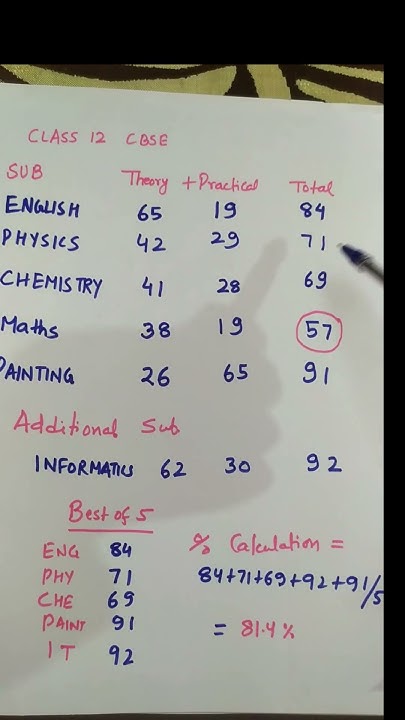 CLASS 12 CBSE
SUB Theory + Practical Total
ENGLISH 65 19 84
PHYSICS 42 29 71
CHEMISTRY 41 28 69
Maths 38 19 57
PAINTING 26 65 91
Additional Sub
INFORMATICS 62 30 92
Best of 5
ENG 84
PHY 71
CHE 69
PAINT 91
IT 92
% Calculation =
84+71+69+92+91/5
= 81.4%